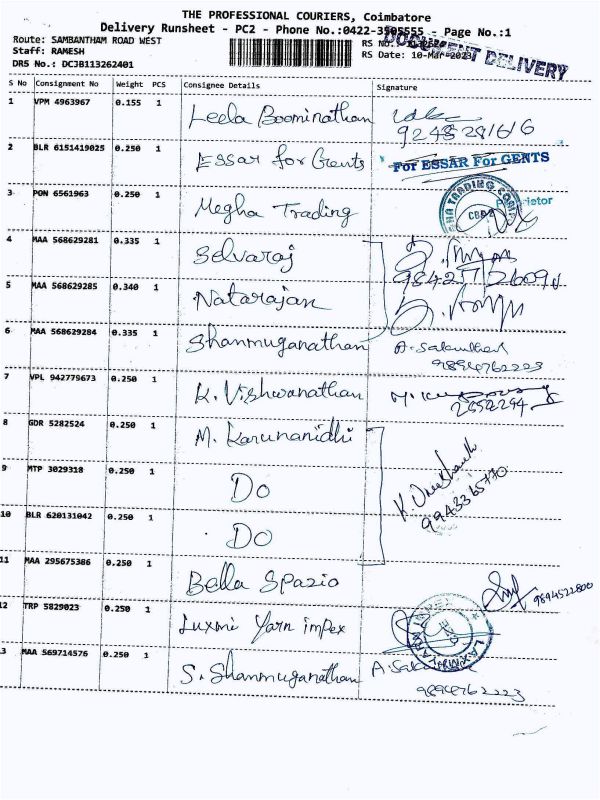 THE PROFESSIONAL COURIERS, Coimbatore
Delivery Runsheet - PC2 - Phone No.:0422-3905555 - Page No.:1
Route: SAMBANTHAM ROAD WEST
RS No.:
DOCUMENT DELIVERY
Staff: RAMESH
RS Date: 10-Mar-2023
DRS No.: DCJB113262401
S No Consignment No Weight PCS Consignee Details Signature
1 VPM 4963967 0.155 1 Leela Boominathan
2 BLR 6151419025 0.250 1 Essar for Gents For ESSAR For GENTS
3 PON 6561963 0.250 1 Megha Trading
Proprietor
4 MAA 568629281 0.335 1 Selvaraj
5 MAA 568629285 0.340 1 Natarajan
6 MAA 568629284 0.335 1 Shanmuganathan
9894762223
7 VPL 942779673 0.250 1 K. Vishwanathan
8 GDR 5282524 0.250 1 M. Karunanidhi
9 MTP 3029318 0.250 1 Do
9943365770
10 BLR 620131042 0.250 1 Do
11 MAA 295675386 0.250 1 Bella Spazio
9894522800
12 TRP 5829023 0.250 1 Luxmi Yarn impex
3 MAA 569714576 0.250 1 S. Shanmuganathan
9894762223